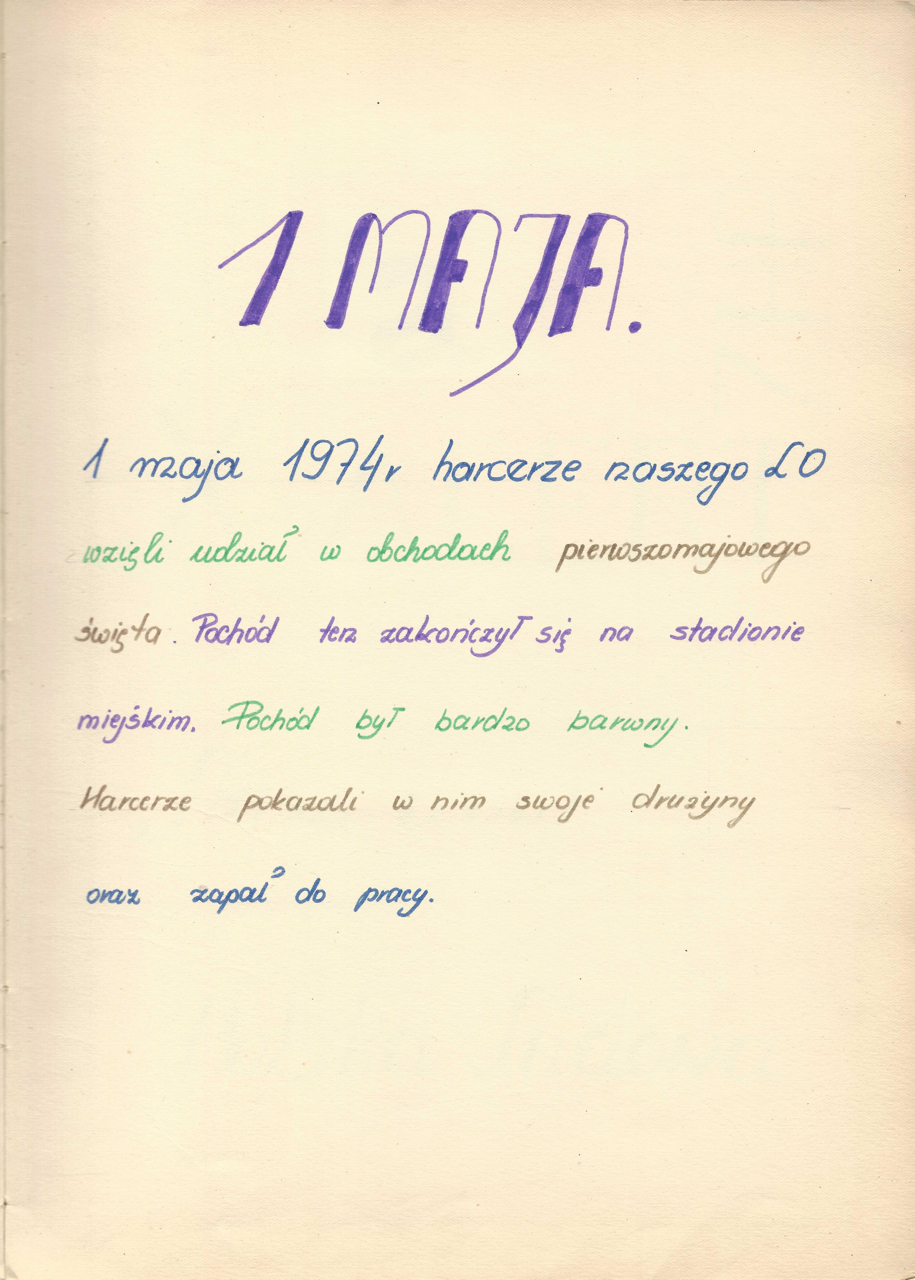 1 MAJA.
1 maja 1974r harcerze naszego LO
wzięli udział w obchodach pierwszomajowego
święta. Pochód ten zakończył się na stadionie
miejskim. Pochód był bardzo barwny.
Harcerze pokazali w nim swoje drużyny
oraz zapał do pracy.